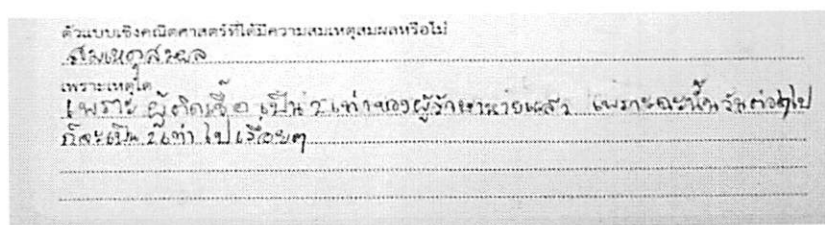 ตัวแบบเชิงคณิตศาสตร์ที่ได้มีความสมเหตุสมผลหรือไม่
สมเหตุสมผล
เพราะเหตุใด
เพราะ ผู้ติดเชื้อ เป็น 2 เท่าของผู้รักษาหายแล้ว เพราะฉะนั้นวันต่อๆไป
ก็จะเป็น 2 เท่า ไปเรื่อยๆ